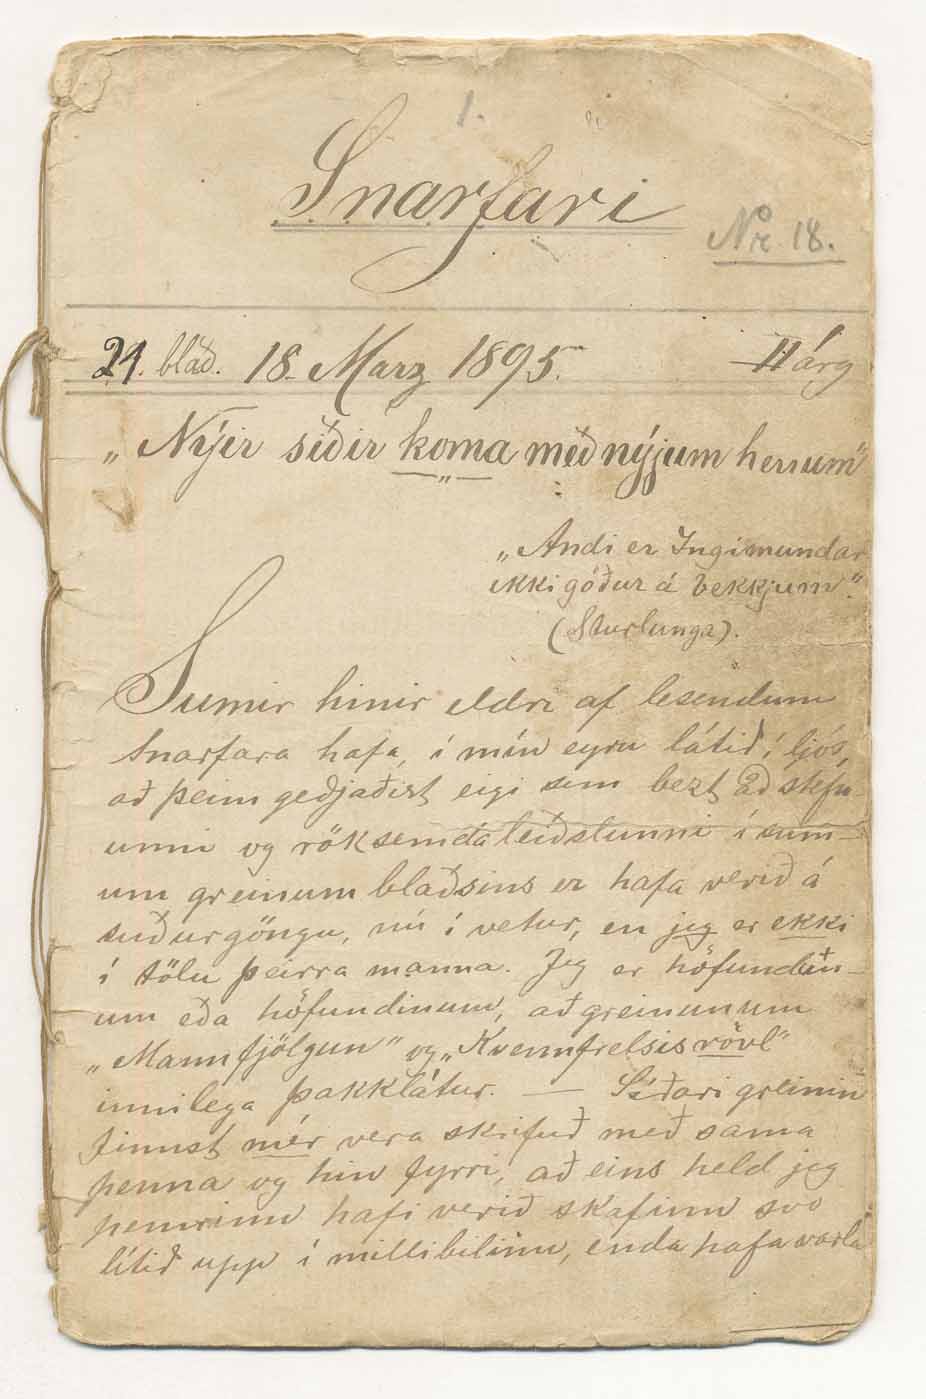 1.
Snarfari
No 18.
21. blað. 18. Marz 1895. II árg
„Nýir síðir koma með nýjum herrum"
„Andi er Ingimundar
ekki góður á bekkjum".
(Sturlunga).
Sumir hinir eldri af lesendum
Snarfara hafa, í mín eyru látið í ljós,
að þeim geðjaðist eigi sem bezt að stefn-
unni og röksemdaleiðslunni í sum-
um greinum blaðsins er hafa verið á
suðurgöngu, nú í vetur, en jeg er ekki
í tölu þeirra manna. Jeg er höfundun-
um eða höfundinum, að greinunum
„Mannfjölgun" og „Kvennfrelsisrövl"
innilega þakklátur. — Síðari greinin
finnst mér vera skrifuð með sama
penna og hin fyrri, að eins held jeg
penninn hafi verið skafinn svo
lítið upp í millibilinu, enda hafa varla